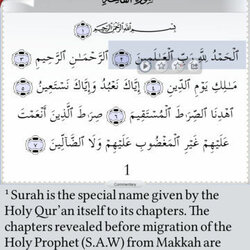 سُورَةُ الْفَاتِحَةِ
بِسْمِ اللَّهِ الرَّحْمَٰنِ الرَّحِيمِ ١
الْحَمْدُ لِلَّهِ رَبِّ الْعَٰلَمِينَ ٢ الرَّحْمَٰنِ الرَّحِيمِ ٣
مَٰلِكِ يَوْمِ الدِّينِ ٤ إِيَّاكَ نَعْبُدُ وَإِيَّاكَ نَسْتَعِينُ ٥
اهْدِنَا الصِّرَٰطَ الْمُسْتَقِيمَ ٦ صِرَٰطَ الَّذِينَ أَنْعَمْتَ
عَلَيْهِمْ غَيْرِ الْمَغْضُوبِ عَلَيْهِمْ وَلَا الضَّالِّينَ ٧
1
Commentary
¹ Surah is the special name given by the
Holy Qur'an itself to its chapters. The
chapters revealed before migration of the
Holy Prophet (S.A.W) from Makkah are